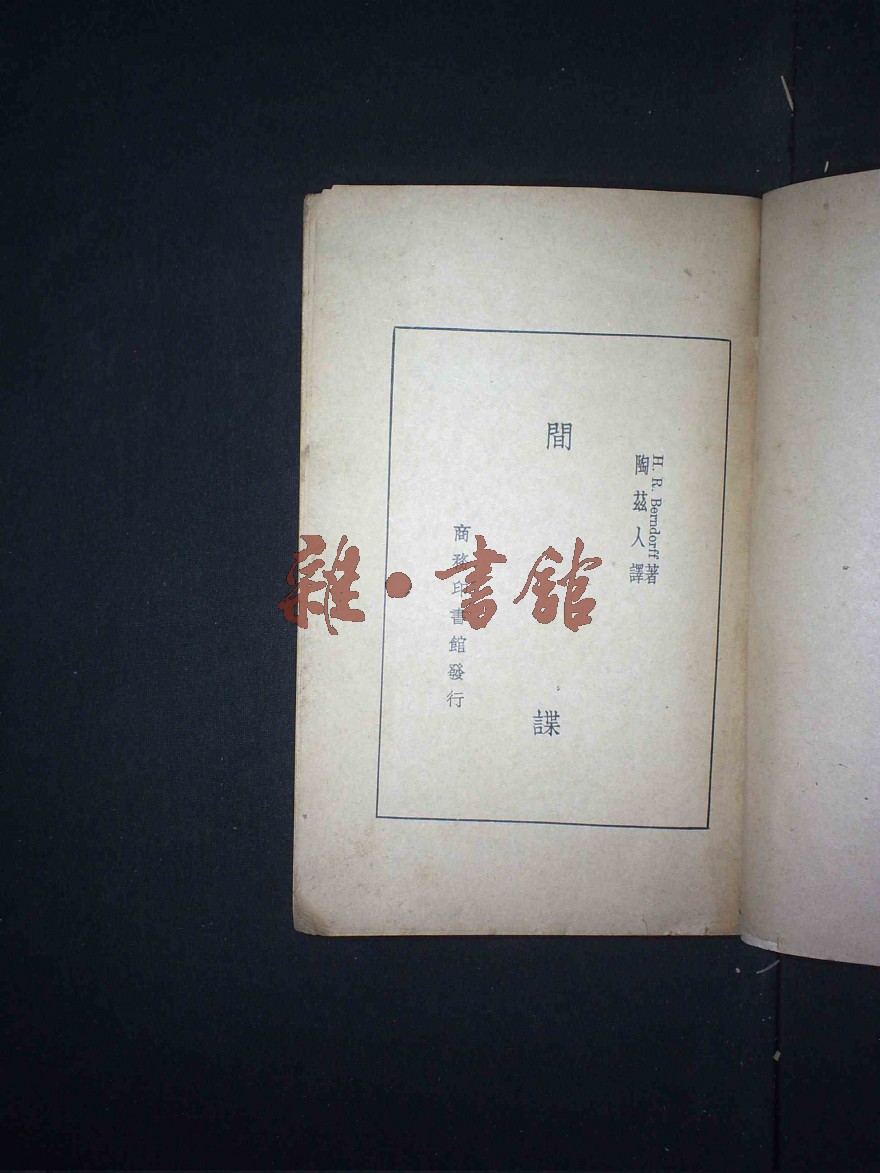 H. R. Berndorff 著
陶茲人譯
間諜
商務印書館發行
雜·書館